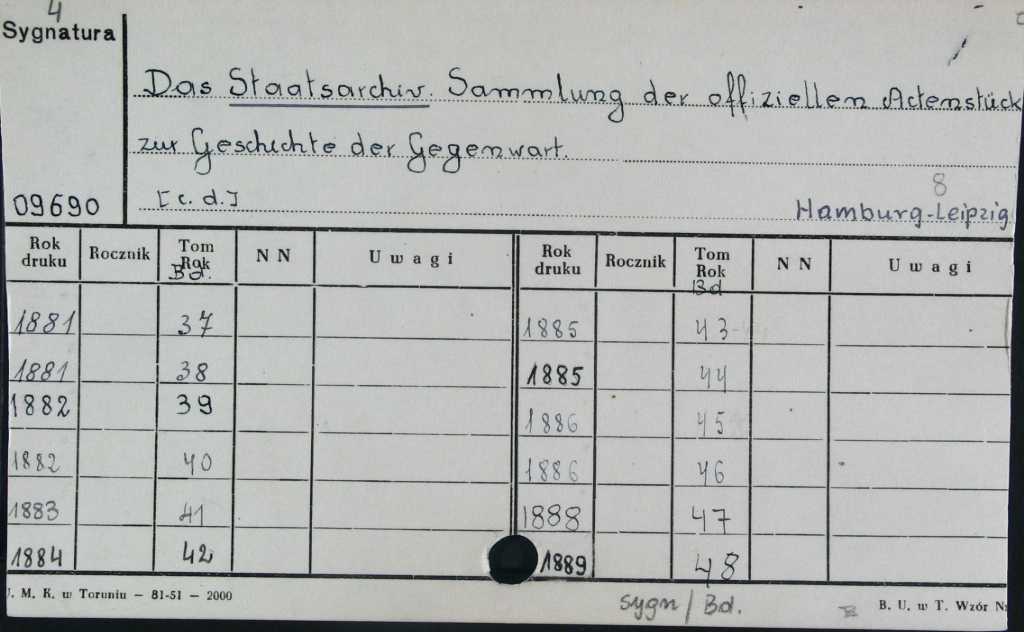 4
Sygnatura
Das Staatsarchiv. Sammlung der offiziellen Actenstück
zur Geschichte der Gegenwart.
8
09690 [c. d.] Hamburg-Leipzig
Rok druku Rocznik Tom Rok Bd. N N Uwagi Rok druku Rocznik Tom Rok Bd N N Uwagi
1881 37 1885 43
1881 38 1885 44
1882 39 1886 45
1882 40 1886 46
1883 41 1888 47
1884 42 1889 48
. M. K. w Toruniu — 81-51 — 2000 sygn/Bd. B. U. w T. Wzór